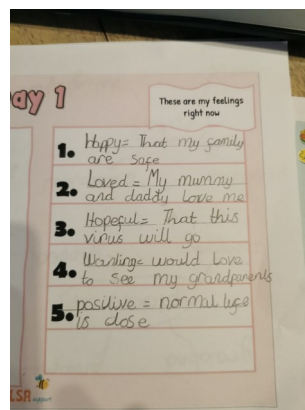 ay 1
These are my feelings
right now
1. Happy= That my family
are safe
2. Loved = My mummy
and daddy love me
3. Hopeful= That this
virus will go
4. Wanting= would love
to see my grandparents
5. positive = normal life
is close
LSA
support